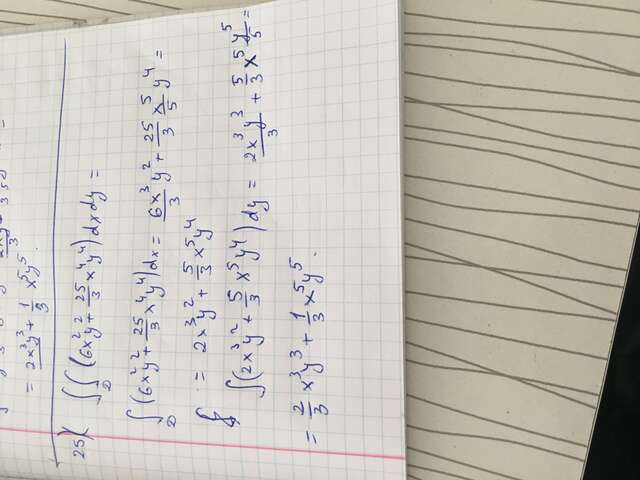 = 2x³y³/3 + 1/3 x⁵y⁵.
25) ∬_D (6x²y² + 25/3 x⁴y⁴) dxdy =
∫_D (6x²y² + 25/3 x⁴y⁴) dx = 6x³/3 y² + 25/3 x⁵/5 y⁴ =
= 2x³y² + 5/3 x⁵y⁴
∫(2x³y² + 5/3 x⁵y⁴) dy = 2x³y³/3 + 5/3 x⁵ y⁵/5 =
= 2/3 x³y³ + 1/3 x⁵y⁵.